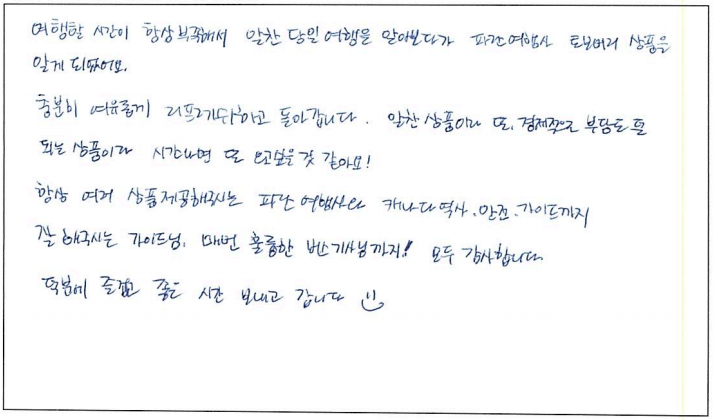 여행할 시간이 항상 부족해서 알찬 당일 여행을 알아보다가 파란여행사 토버머리 상품을
알게 되었어요.
충분히 여유롭게 리프레쉬하고 돌아갑니다. 알찬 상품이라 또, 경제적으로 부담도 덜
되는 상품이라 시간나면 또 오고싶을 것 같아요!
항상 여러 상품제공해주시는 파란 여행사와 캐나다 역사, 안전, 가이드까지
잘 해주시는 가이드님, 매번 훌륭한 버스기사님까지! 모두 감사합니다.
덕분에 즐겁고 좋은 시간 보내고 갑니다 :)